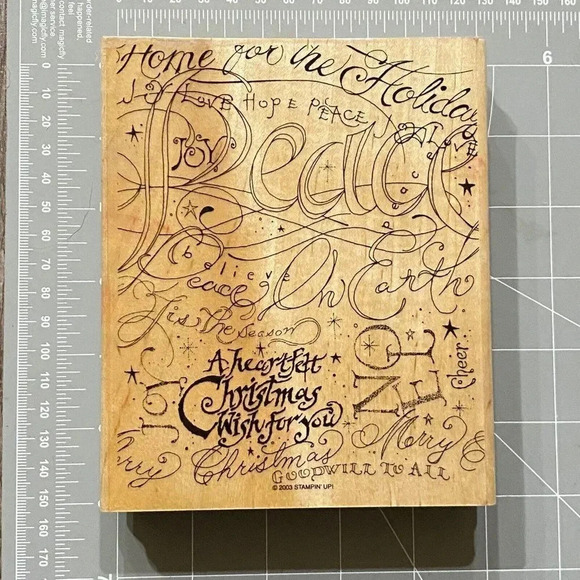 Home for the Holidays
Joy Love Hope Peace
Joy
Peace
peace
believe
Peace On Earth
'Tis The Season
A heartfelt
Christmas
Wish for you
NOEL
Cheer
Joy
Merry
Christmas
GOODWILL TO ALL
© 2003 STAMPIN' UP!
6
0
10
20
30
40
50
60
70
80
90
100
110
120
130
140
150
160
170